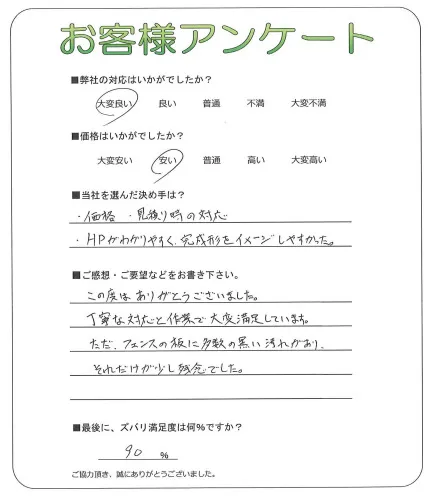 お客様アンケート
■弊社の対応はいかがでしたか？
大変良い 良い 普通 不満 大変不満
■価格はいかがでしたか？
大変安い 安い 普通 高い 大変高い
■当社を選んだ決め手は？
・価格 ・見積り時の対応
・HPがわかりやすく、完成形をイメージしやすかった。
■ご感想・ご要望などをお書き下さい。
この度はありがとうございました。
丁寧な対応と作業で大変満足しています。
ただ、フェンスの板に多数の黒い汚れがあり、
それだけが少し残念でした。
■最後に、ズバリ満足度は何%ですか？
90 %
ご協力頂き、誠にありがとうございました。